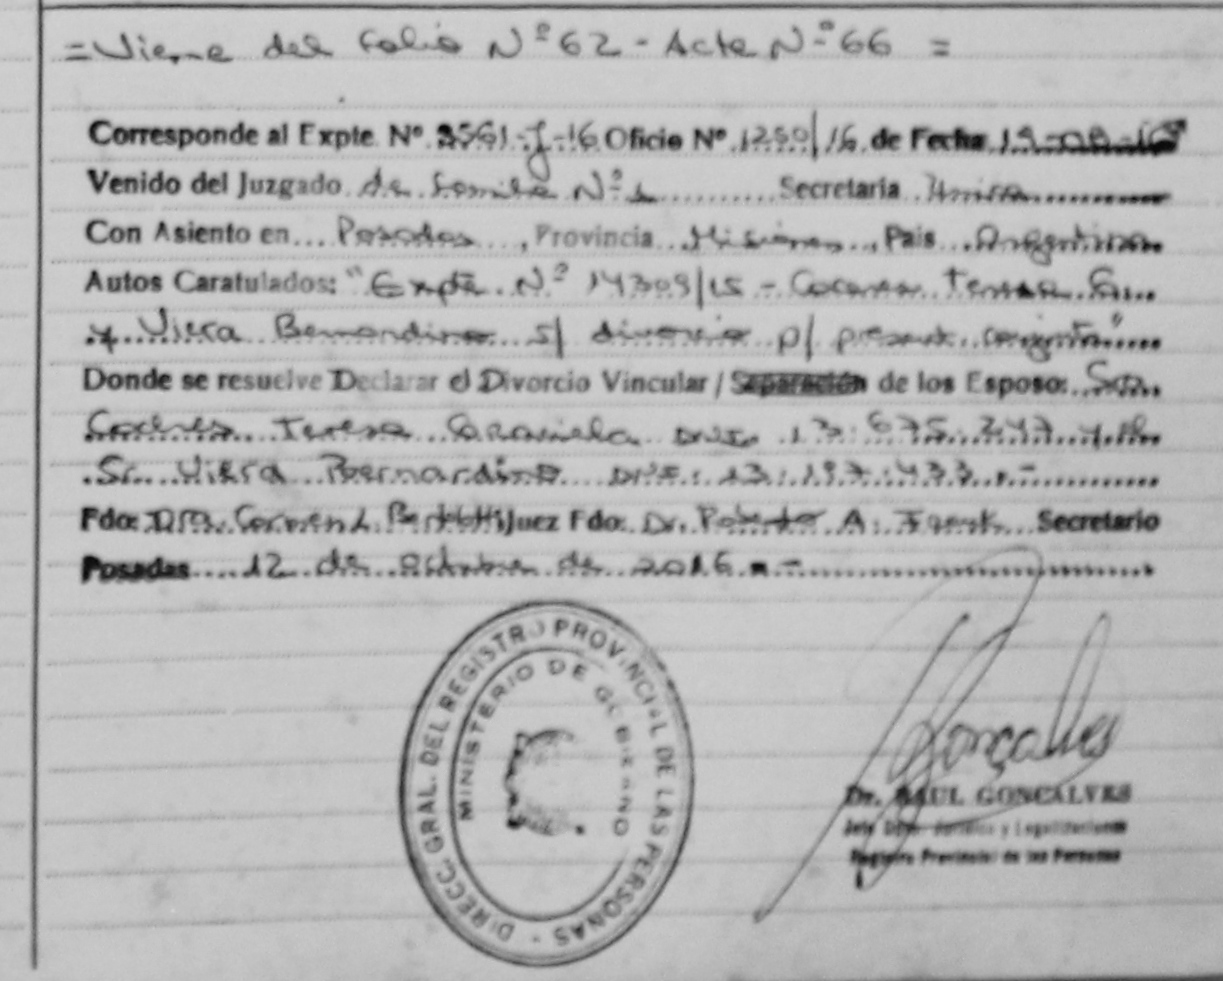 = Viene del folio Nº 62 - Acta Nº 66 =
Corresponde al Expte. Nº 3561-J-16 Oficio Nº 1250/16 de Fecha
Venido del Juzgado de Familia Nº 1 Secretaria Unica
Con Asiento en Posadas, Provincia Misiones, Pais Argentina
Autos Caratulados: "Expte. Nº 14309/15 - Teresa G.
y Viera Bernardino s/ divorcio p/ present. conjunta"
Donde se resuelve Declarar el Divorcio Vincular / Separación de los Esposo: Sra.
Teresa Graciela DNI. 13.675.247 y el
Sr. Viera Bernardino DNI: 13.197.433.-
Fdo: Dra. Carmen L. Juez Fdo: Dr. Roberto A. Secretario
Posadas 12 de octubre de 2016.-
DIRECC. GRAL. DEL REGISTRO PROVINCIAL DE LAS PERSONAS -
MINISTERIO DE GOBIERNO
Gonçalves
Dr. RAUL GONCALVES
Jefe Dpto. Jurídico y Legalizaciones
Registro Provincial de las Personas